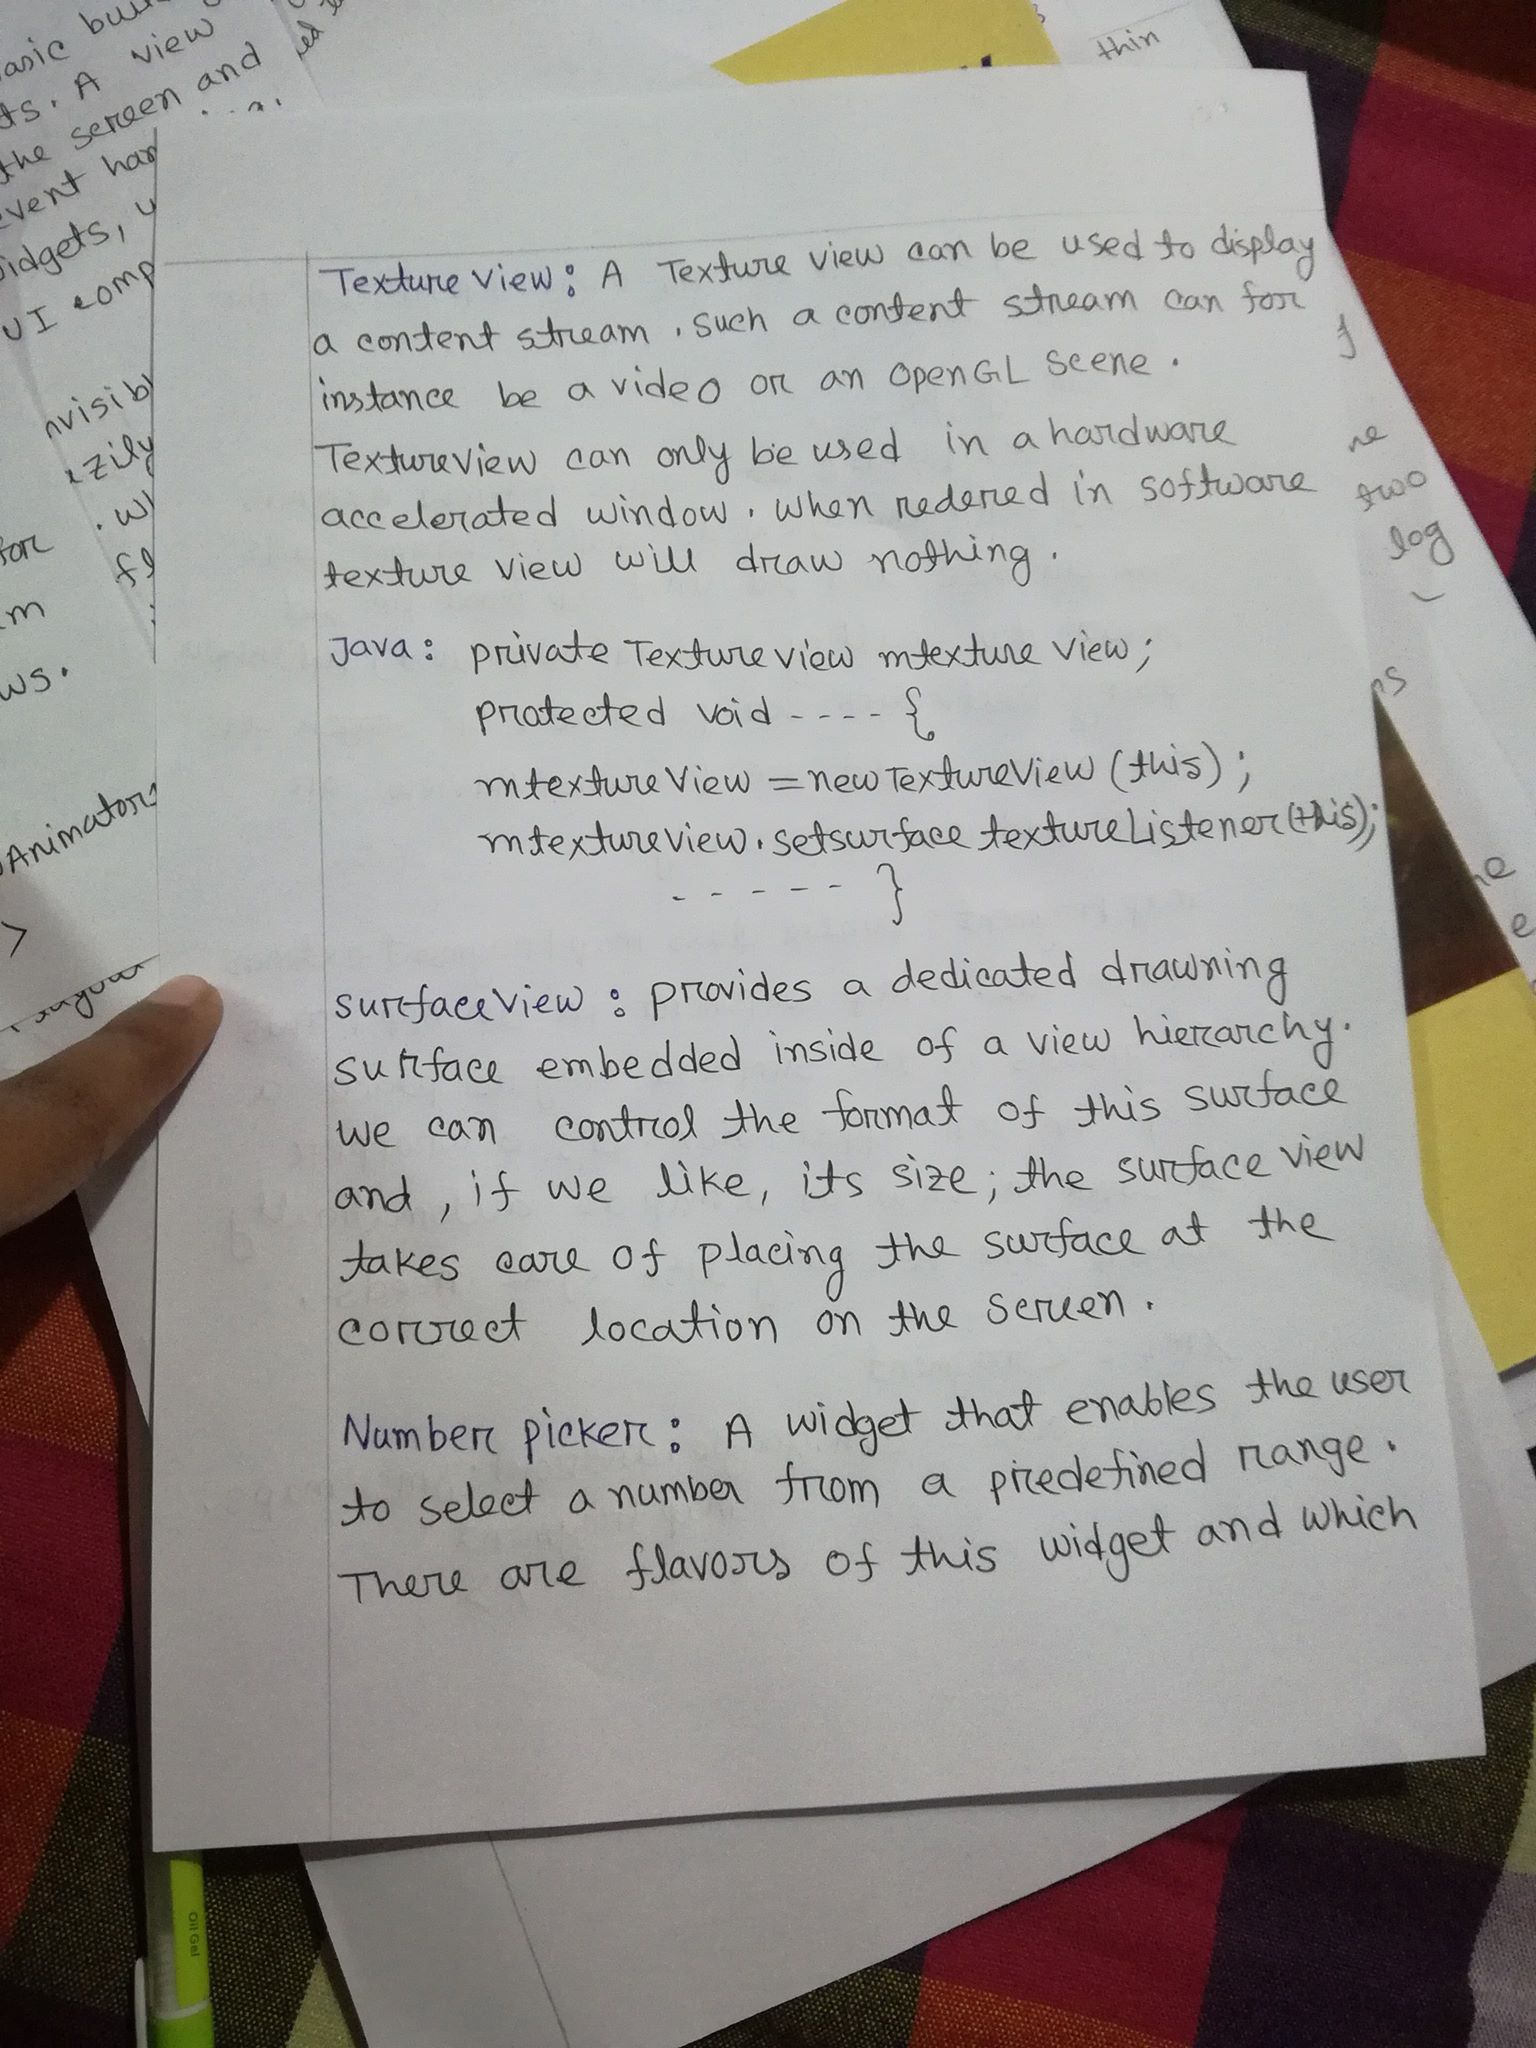 asic
ts. A view
the screen and
event han
idgets, u
UI comp
nvisib
for
m
ws.
Animators
thin
two
log
Texture View: A Texture view can be used to display
a content stream. such a content stream can for
instance be a video or an OpenGL scene.
TextureView can only be used in a hardware
accelerated window. when redered in software
texture view will draw nothing.
Java: private Texture view mtexture view;
protected void ---- {
mtexture View = new TextureView (this);
mtextureview.setsurface textureListener(this);
- - - - - }
surfaceView: provides a dedicated drawning
surface embedded inside of a view hierarchy.
we can control the format of this surface
and, if we like, its size; the surface view
takes care of placing the surface at the
correct location on the screen.
Number picker: A widget that enables the user
to select a number from a predefined range.
There are flavors of this widget and which
Oil Gel